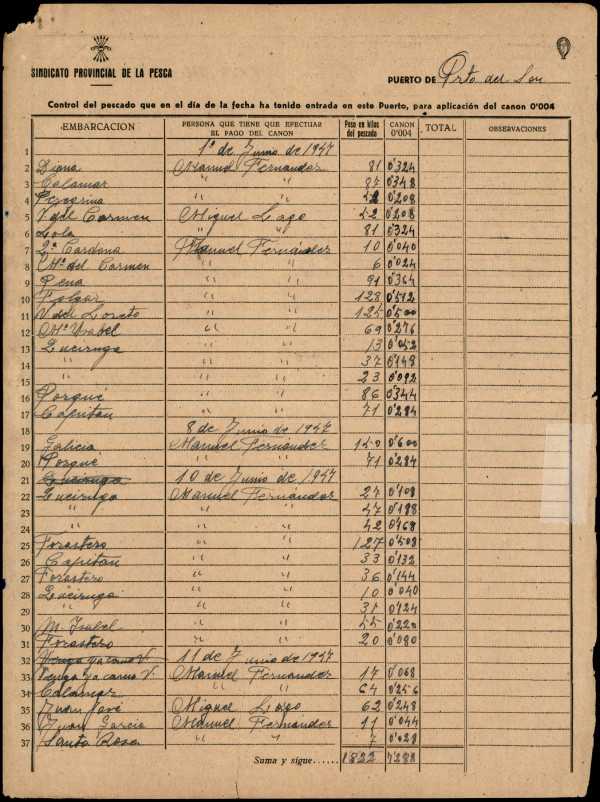 SINDICATO PROVINCIAL DE LA PESCA
PUERTO DE Prto del Son
Control del pescado que en el día de la fecha ha tenido entrada en este Puerto, para aplicación del canon 0'004
EMBARCACION PERSONA QUE TIENE QUE EFECTUAR EL PAGO DEL CANON Peso en kilos del pescado CANON 0'004 TOTAL OBSERVACIONES
1 1º de Junio de 1947
2 Diana Manuel Fernandez 81 0'324
3 Calamar " " 87 0'348
4 Peregrina " " 52 0'208
5 V. del Carmen Miguel Lago 52 0'208
6 Lola " " 81 0'324
7 2ª Cardona Manuel Fernández 10 0'040
8 Mª del Carmen " " 6 0'024
9 Pena " " 91 0'364
10 Folgar " " 128 0'512
11 V del Loreto " " 125 0'500
12 Mª Ysabel " " 69 0'276
13 Queiruga " " 13 0'052
14 " " " 37 0'148
15 " " 23 0'092
16 Porqué " " 86 0'344
17 Capitan " " 71 0'284
18 8 de Junio de 1947
19 Galicia Manuel Fernández 150 0'600
20 Porqué " " 71 0'284
21 Queiruga 10 de Junio de 1947
22 Queiruga Manuel Fernández 27 0'108
23 " " " 47 0'188
24 " " " 42 0'168
25 Forastero " " 127 0'508
26 Capitan " " 33 0'132
27 Forastero " " 36 0'144
28 Queiruga " " 10 0'040
29 " " " 31 0'124
30 M. Isabel " " 55 0'220
31 Forastero " " 20 0'080
32 Vengo ya como V. 11 de Junio de 1947
33 Vengo ya como V. Manuel Fernández 17 0'068
34 Calamar " " 64 0'256
35 Juan José Miguel Lago 62 0'248
36 Juan Garcia Manuel Fernández 11 0'044
37 Santa Rosa " " 7 0'028
Suma y sigue...... 1822 7'288